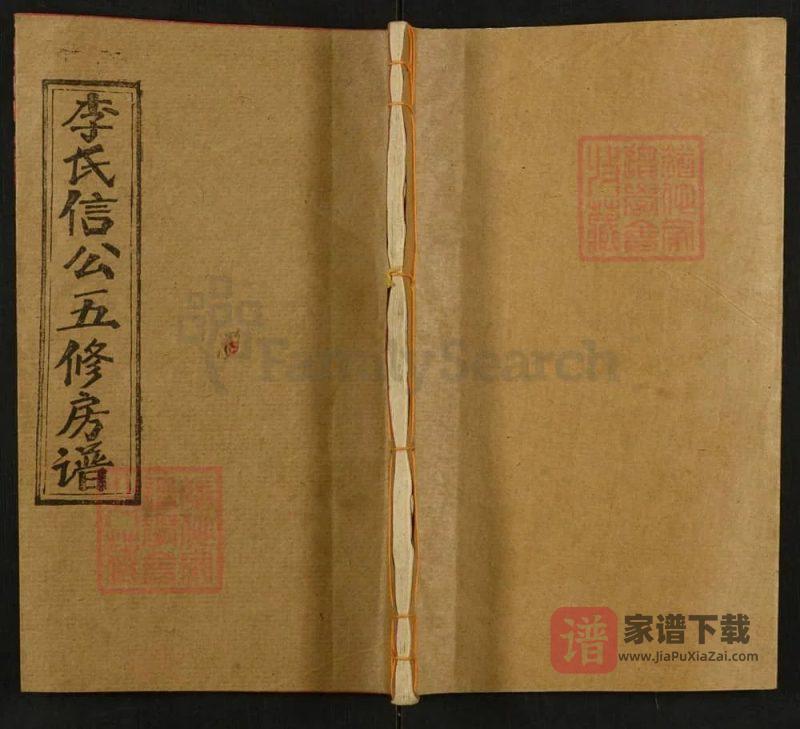 李氏信公五修房谱
FamilySearch
谱
家谱下载
www.JiaPuXiaZai.com